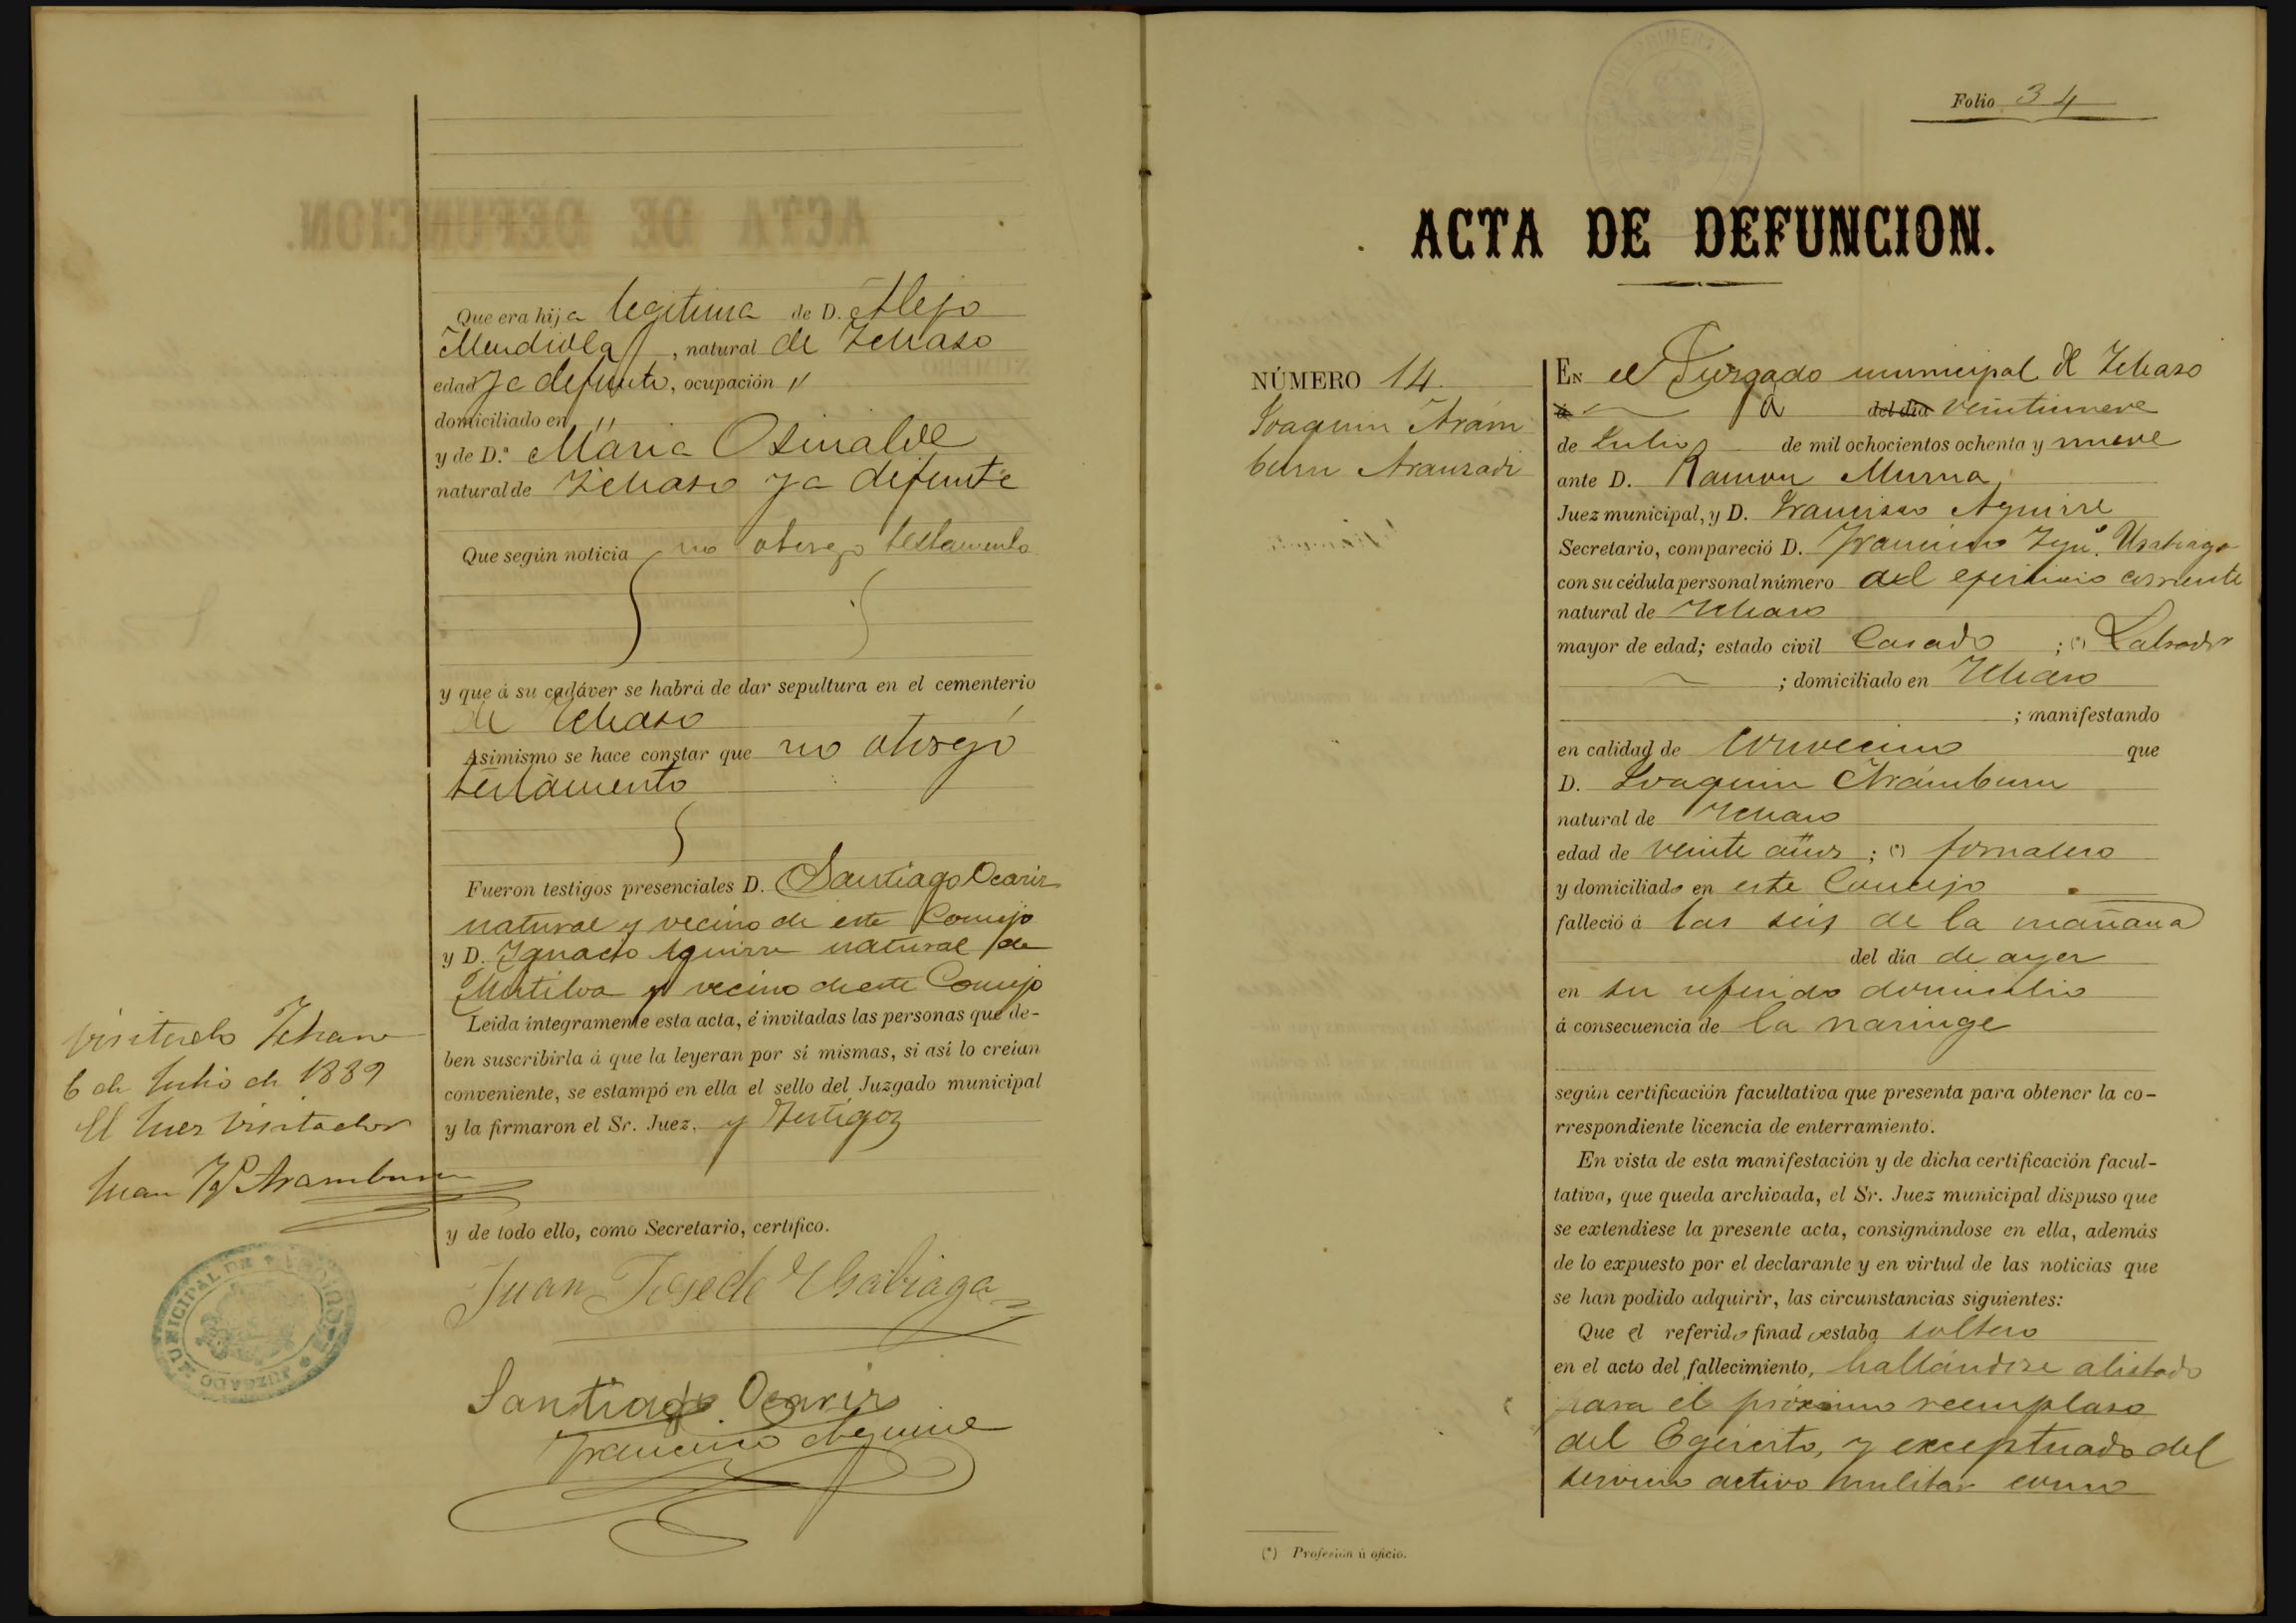 Que era hija legitima de D. Alejo
Mendiola, natural de Ichaso
edad ya defunto, ocupación "
domiciliado en "
y de D.ª Maria Osinalde
natural de Ichaso ya defunta
Que según noticia no otorgo testamento
y que á su cadáver se habrá de dar sepultura en el cementerio
de Ichaso
Asimismo se hace constar que no otorgó
testamento
Fueron testigos presenciales D. Santiago Ocariz
natural y vecino de este Concejo
y D. Ignacio Aguirre natural de
Mutiloa y vecino de este Concejo
Leida íntegramente esta acta, é invitadas las personas que de-
ben suscribirla á que la leyeran por sí mismas, si así lo creían
conveniente, se estampó en ella el sello del Juzgado municipal
y la firmaron el Sr. Juez. y Testigos
y de todo ello, como Secretario, certifico.
Juan Jose de Usabiaga
Santiago Ocariz
Francisco Aguirre
Visitado Ichaso
6 de Julio de 1889
El Juez Visitador
Juan Aramburu
JUZGADO MUNICIPAL DE
Folio 34
ACTA DE DEFUNCION.
NÚMERO 14.
Joaquin Arám
buru Aranzadi
EN el Juzgado municipal de Ichaso
á á del dia veintinueve
de Julio de mil ochocientos ochenta y nueve
ante D. Ramon Murua
Juez municipal, y D. Francisco Aguirre
Secretario, compareció D. Francisco Ign.º Usabiaga
con su cédula personal número del ejercicio corriente
natural de Ichaso
mayor de edad; estado civil Casado ; (*) Labrador
; domiciliado en Ichaso
; manifestando
en calidad de convecino que
D. Joaquin Arámburu
natural de Ichaso
edad de veinte años ; (*) jornalero
y domiciliado en este Concejo
falleció á las seis de la mañana
del dia de ayer
en su referido domicilio
á consecuencia de la naringe
según certificación facultativa que presenta para obtener la co-
rrespondiente licencia de enterramiento.
En vista de esta manifestación y de dicha certificación facul-
tativa, que queda archivada, el Sr. Juez municipal dispuso que
se extendiese la presente acta, consignándose en ella, además
de lo expuesto por el declarante y en virtud de las noticias que
se han podido adquirir, las circunstancias siguientes:
Que el referido finado estaba soltero
en el acto del fallecimiento, hallándose alistado
para el próximo reemplaso
del Egercito, y exceptuado del
servicio activo militar como
(*) Profesión ú oficio.